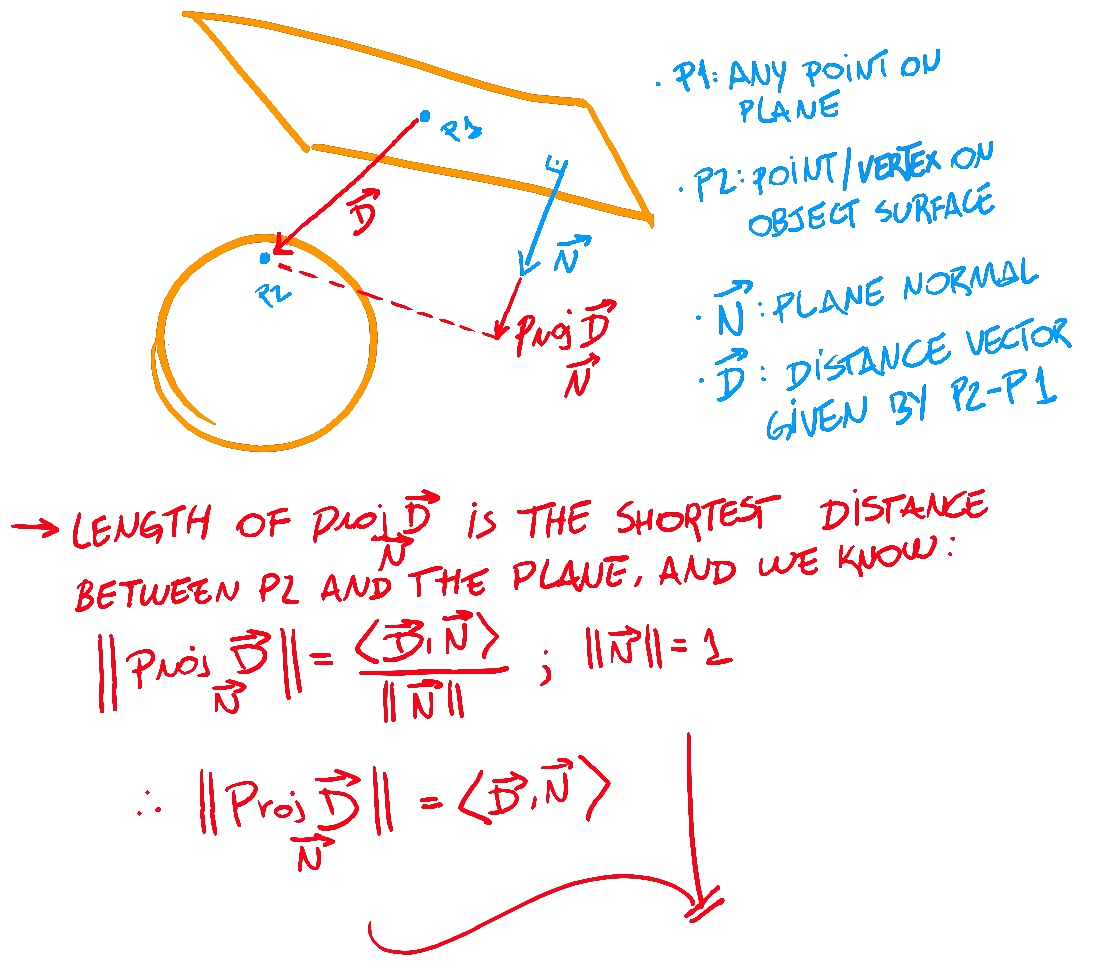 · P1: ANY POINT ON
PLANE
P1
· P2: POINT/VERTEX ON
OBJECT SURFACE
D⃗
N⃗
P2
· N⃗: PLANE NORMAL
Proj D⃗
N⃗
· D⃗: DISTANCE VECTOR
GIVEN BY P2-P1
→ LENGTH OF Proj D⃗ IS THE SHORTEST DISTANCE
N⃗
BETWEEN P2 AND THE PLANE, AND WE KNOW:
||Proj D⃗|| = <D⃗, N⃗> ; ||N⃗|| = 1
N⃗ ||N⃗||
∴ ||Proj D⃗|| = <D⃗, N⃗>
N⃗